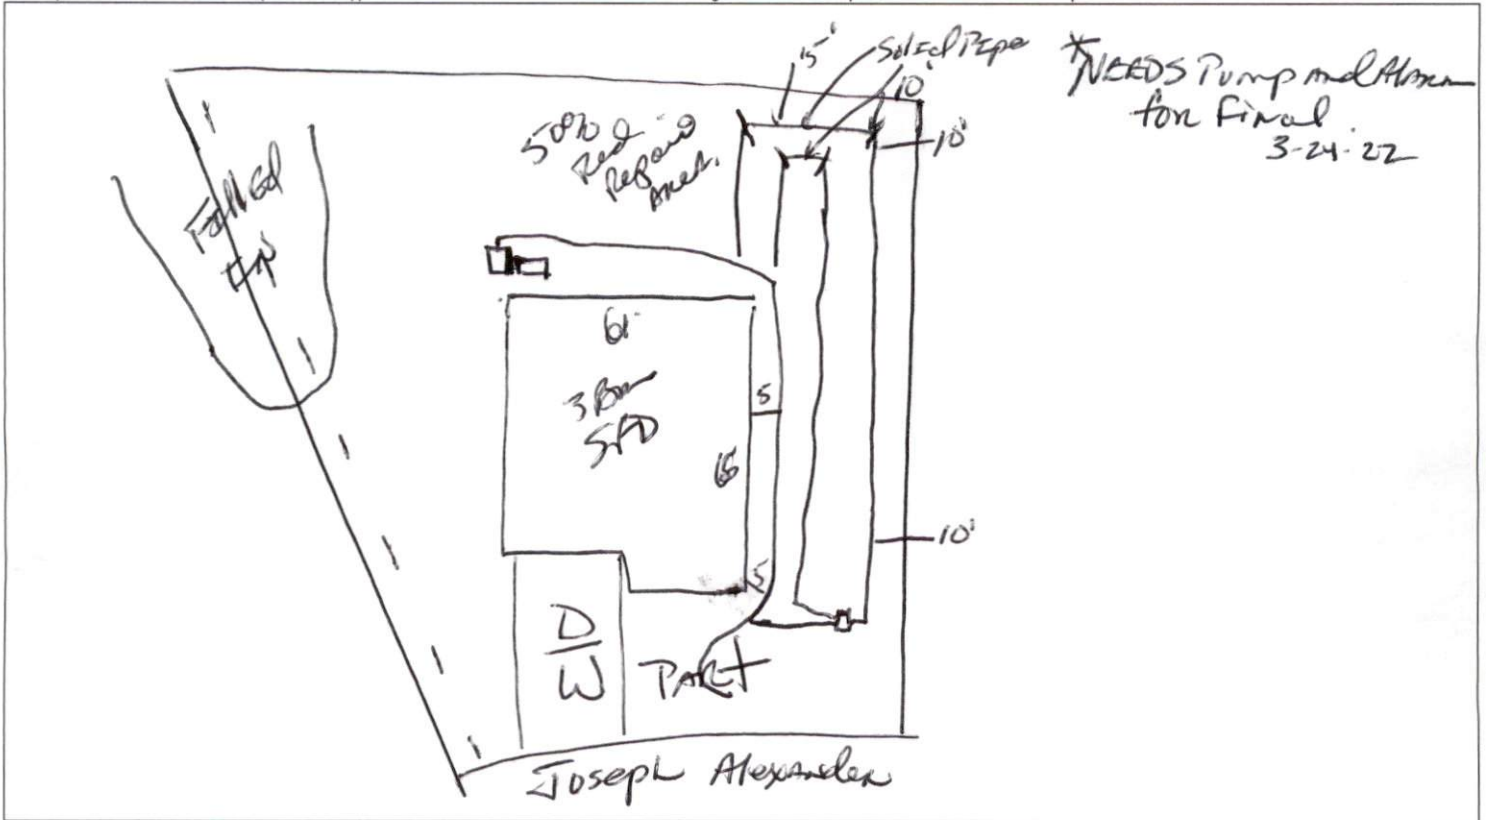 15'
Solid Pipe
10'
*NEEDS Pump and Alarm
for Final
3-24-22
10'
50% Red
Repair
Area.
Filled
Up
61'
3 Bdr
SFD
5
5
10'
D/W
PART
Joseph Alexander